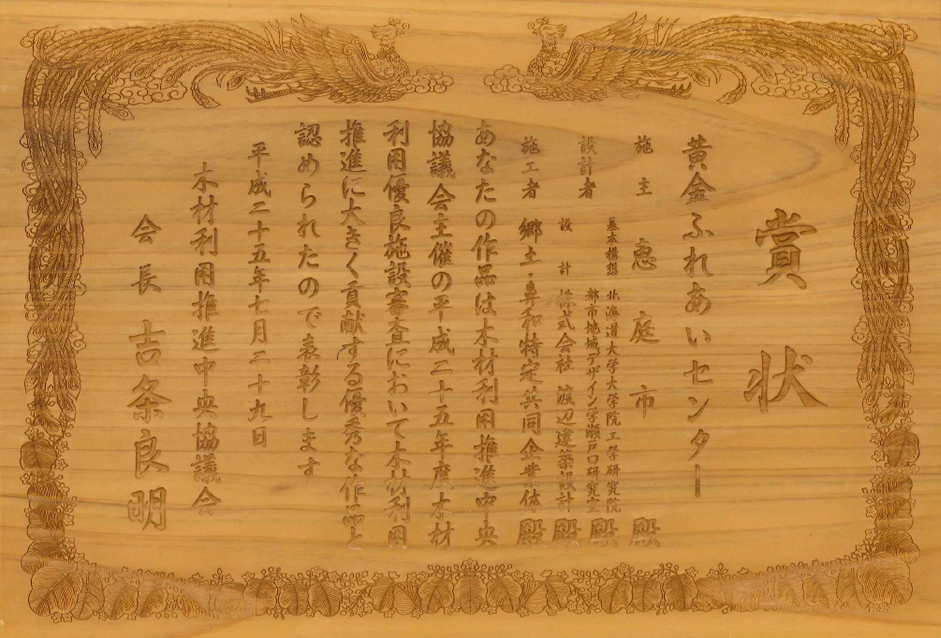 賞状
黄金ふれあいセンター
施主 恵庭市 殿
設計者 基本構想 北海道大学大学院工学研究院
都市地域デザイン学瀬戸口研究室 殿
設計 株式会社 渡辺建築設計 殿
施工者 郷土・昇和特定共同企業体 殿
あなたの作品は木材利用推進中央
協議会主催の平成二十五年度木材
利用優良施設審査において木材利用
推進に大きく貢献する優秀な作品と
認められたので表彰します
平成二十五年七月二十九日
木材利用推進中央協議会
会長 吉条良明